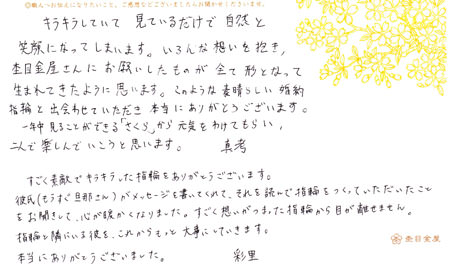 ◎職人へお伝えになりたいこと、ご感想などございましたらお聞かせくださいませ。
キラキラしていて 見ているだけで 自然と
笑顔になってしまいます。いろんな想いを抱き、
杢目金屋さんに お願いしたものが 全て 形となって
生まれてきたように 思います。このような 素晴らしい 婚約
指輪と 出会わせていただき 本当に ありがとうございます。
一年中 見ることができる「さくら」から 元気を わけてもらい、
二人で 楽しんでいこうと 思います。 真考
すごく素敵で キラキラした 指輪を ありがとうございます。
彼氏(もうすぐ旦那さん)がメッセージを書いてくれて、それを読んで指輪をつくっていただいたこと
をお聞きして、心が暖かくなりました。すごく思いがつまった指輪から目が離せません。
指輪と隣にいる彼を、これからもっと大事にしていきます。
本当にありがとうございました。 彩里
杢目金屋